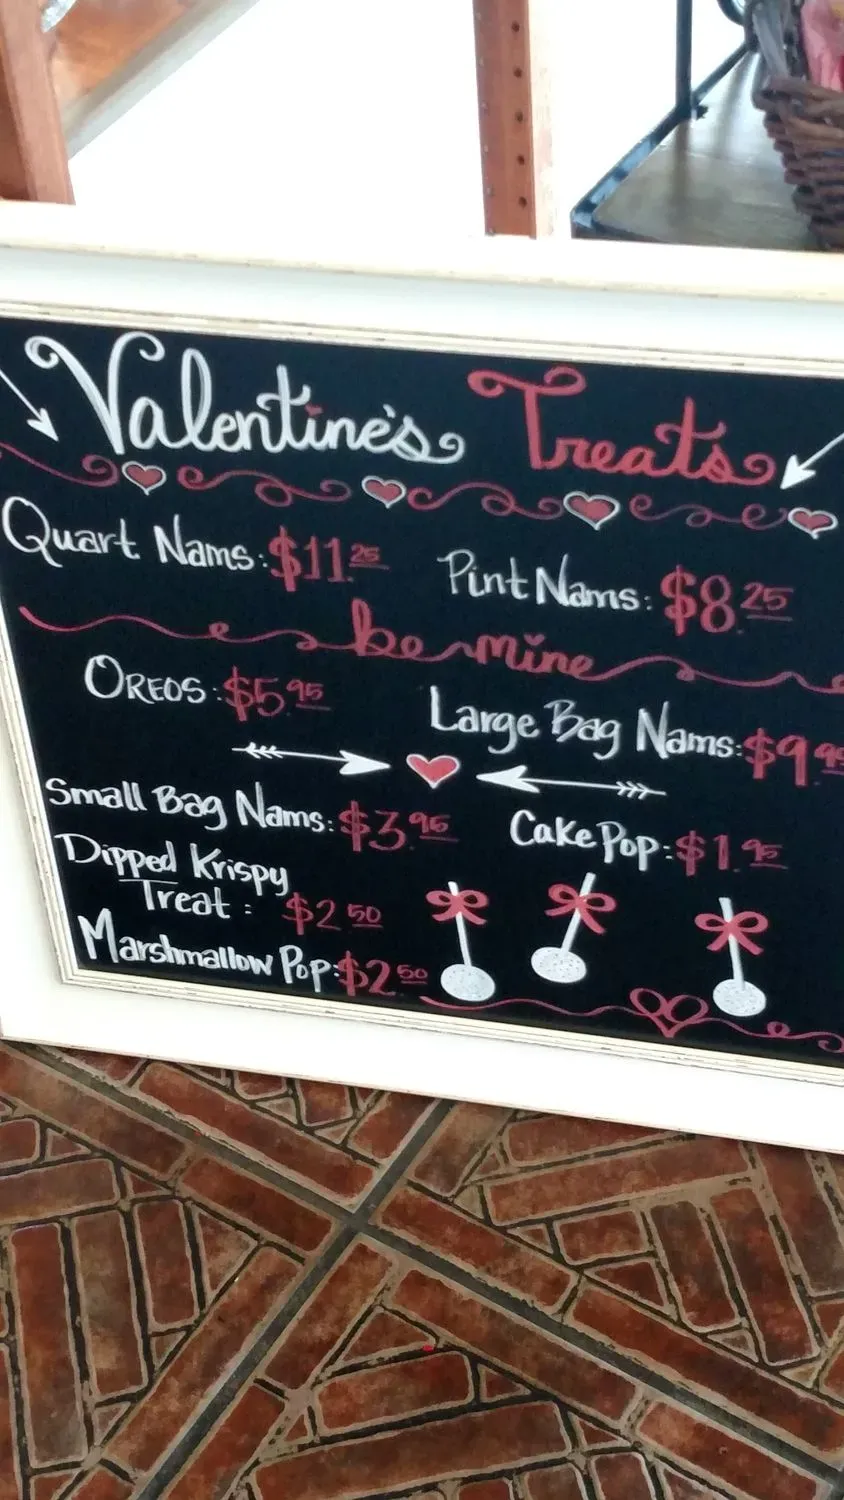 Valentine's Treats
Quart Nams: $11.25
Pint Nams: $8.25
be mine
OREOS: $5.95
Large Bag Nams: $9
Small Bag Nams: $3.95
Cake Pop: $1.95
Dipped Krispy
Treat: $2.50
Marshmallow Pop: $2.50